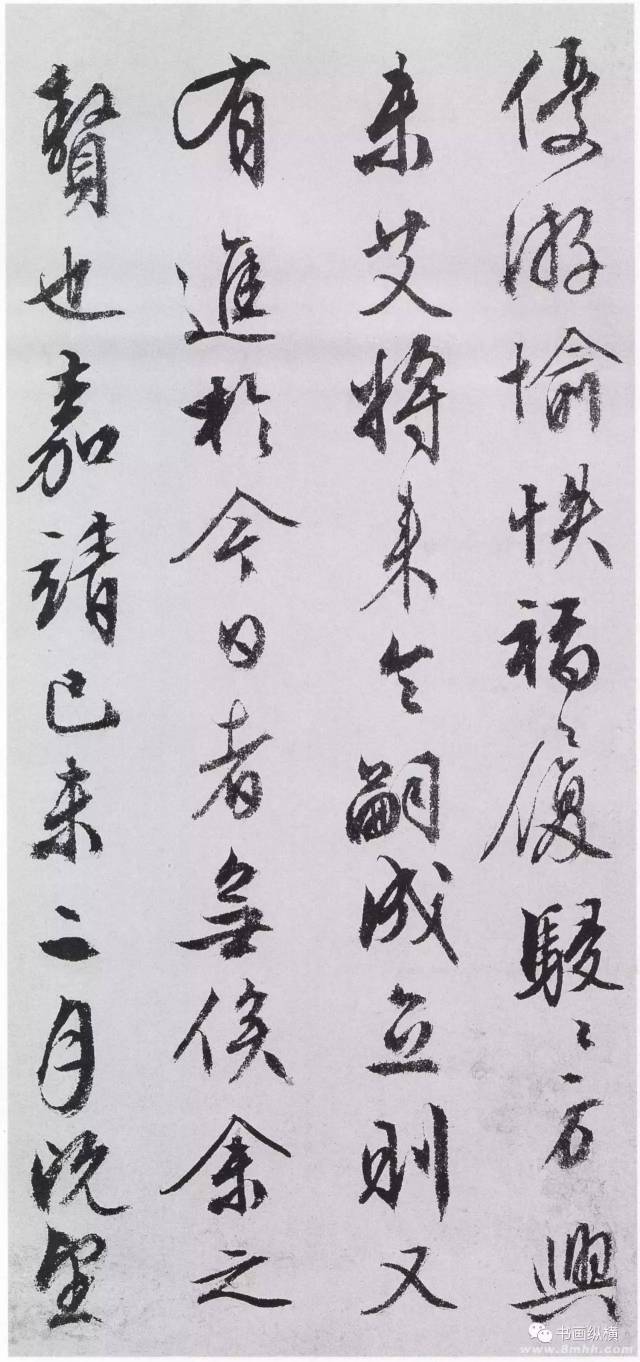 優游愉怏福履駸〻方興
未艾將來令嗣成立則又
有進於今日者無俟余之
贅也嘉靖己未二月既望
书画纵横
www.8mhh.com